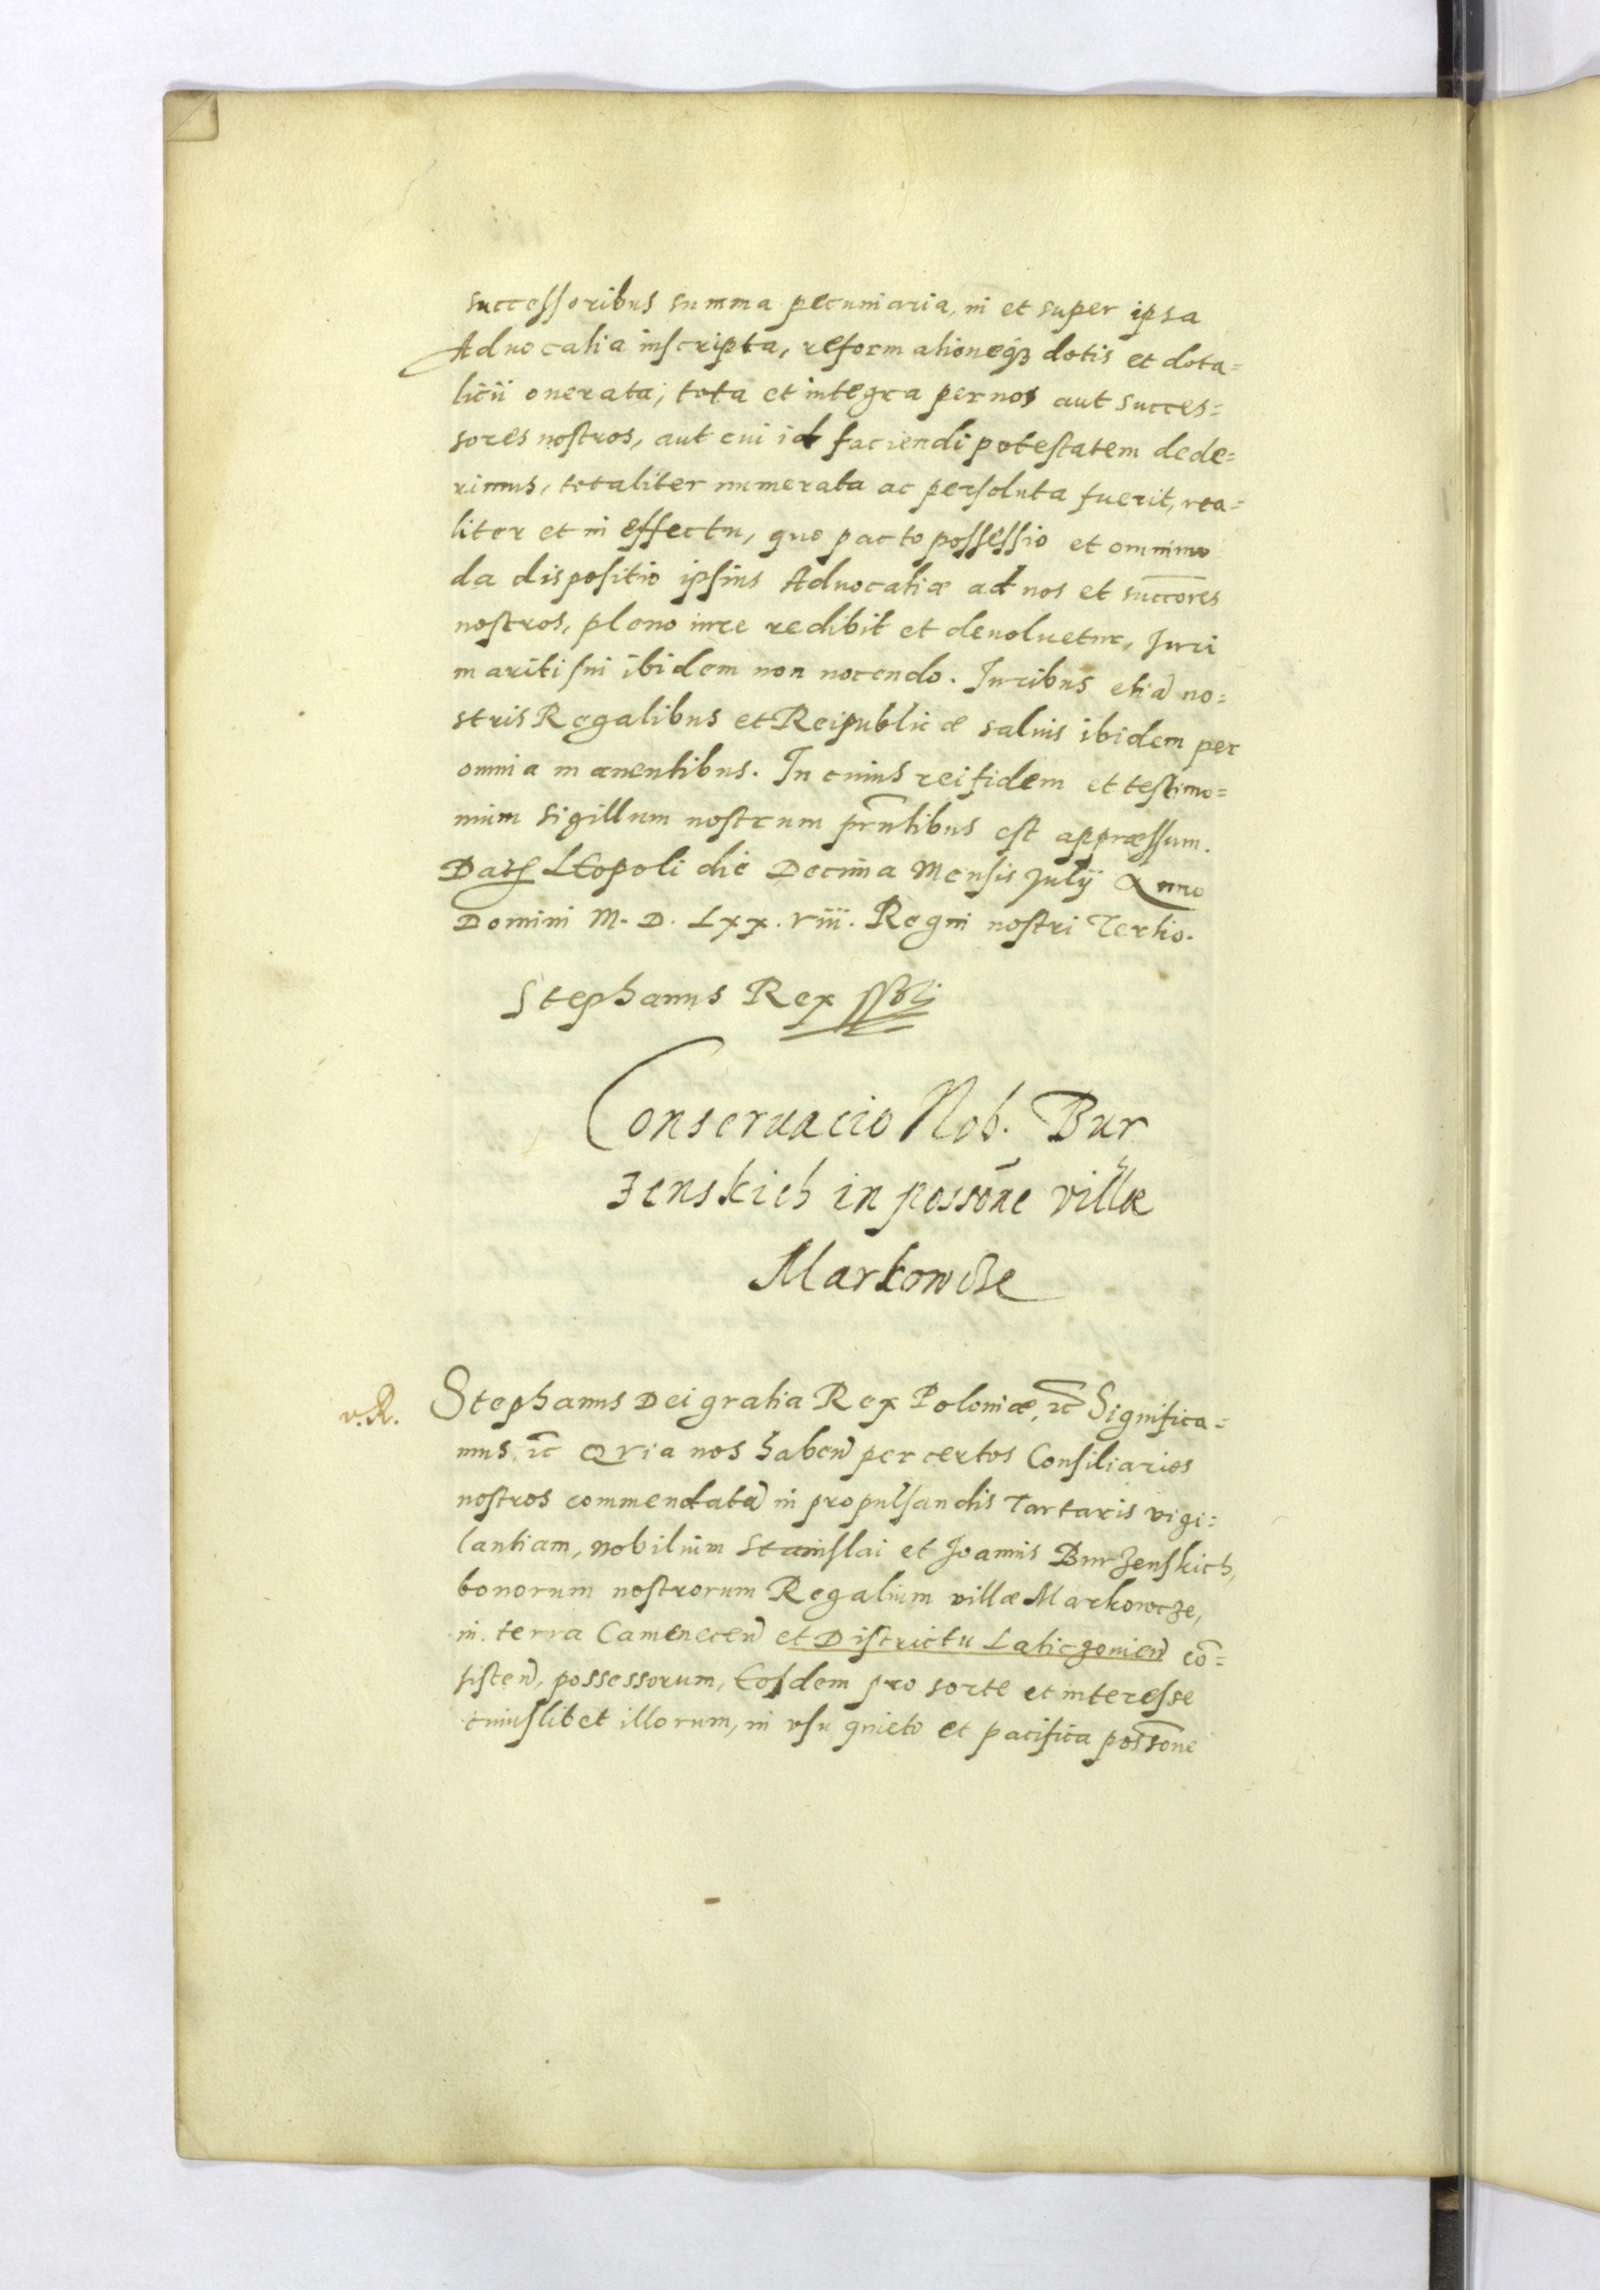 successoribus summa pecuniaria, in et super ipsa
Aduocatia inscripta, reformationeq3 dotis et dota=
licii onerata, tota et integra per nos aut succes=
sores nostros, aut cui id faciendi potestatem dede=
rimus, totaliter numerata ac persoluta fuerit, rea=
liter et in effectu, quo pacto possessio et omnimo
da dispositio ipsius Aduocatiæ ad nos et succōres
nostros, pleno iure redibit et deuoluetur, Juri
mariti sui ibidem non nocendo. Juribus etiā no=
stris Regalibus et Reipublicæ saluis ibidem per
omnia manentibus. In cuius rei fidem et testimo=
nium sigillum nostrum prn̄tibus est appræssum.
Dat Leopoli die Decima Mensis Julÿ Anno
Domini M. D. Lxx. viii. Regni nostri Tertio.
Stephanus Rex sst
Conseruacio Nob. Bur
zenskich in possōne villæ
Markowcze
v. R.
Stephanus Dei gratia Rex Poloniæ, ꝛc̄ Significa=
mus ꝛc̄ Qvia nos haben̄ per certos Consiliarios
nostros commendatā in propulsandis Tartaris vigi=
lantiam, nobilium Stanislai et Joannis Burzenskich,
bonorum nostrorum Regalium villæ Markowcze,
in terra Camenecen̄ et Districtu Laticzouien̄ cō=
sisten̄, possessorum, Eosdem pro sorte et interesse
cuiuslibet illorum, in vsu quieto et pacifica possōne